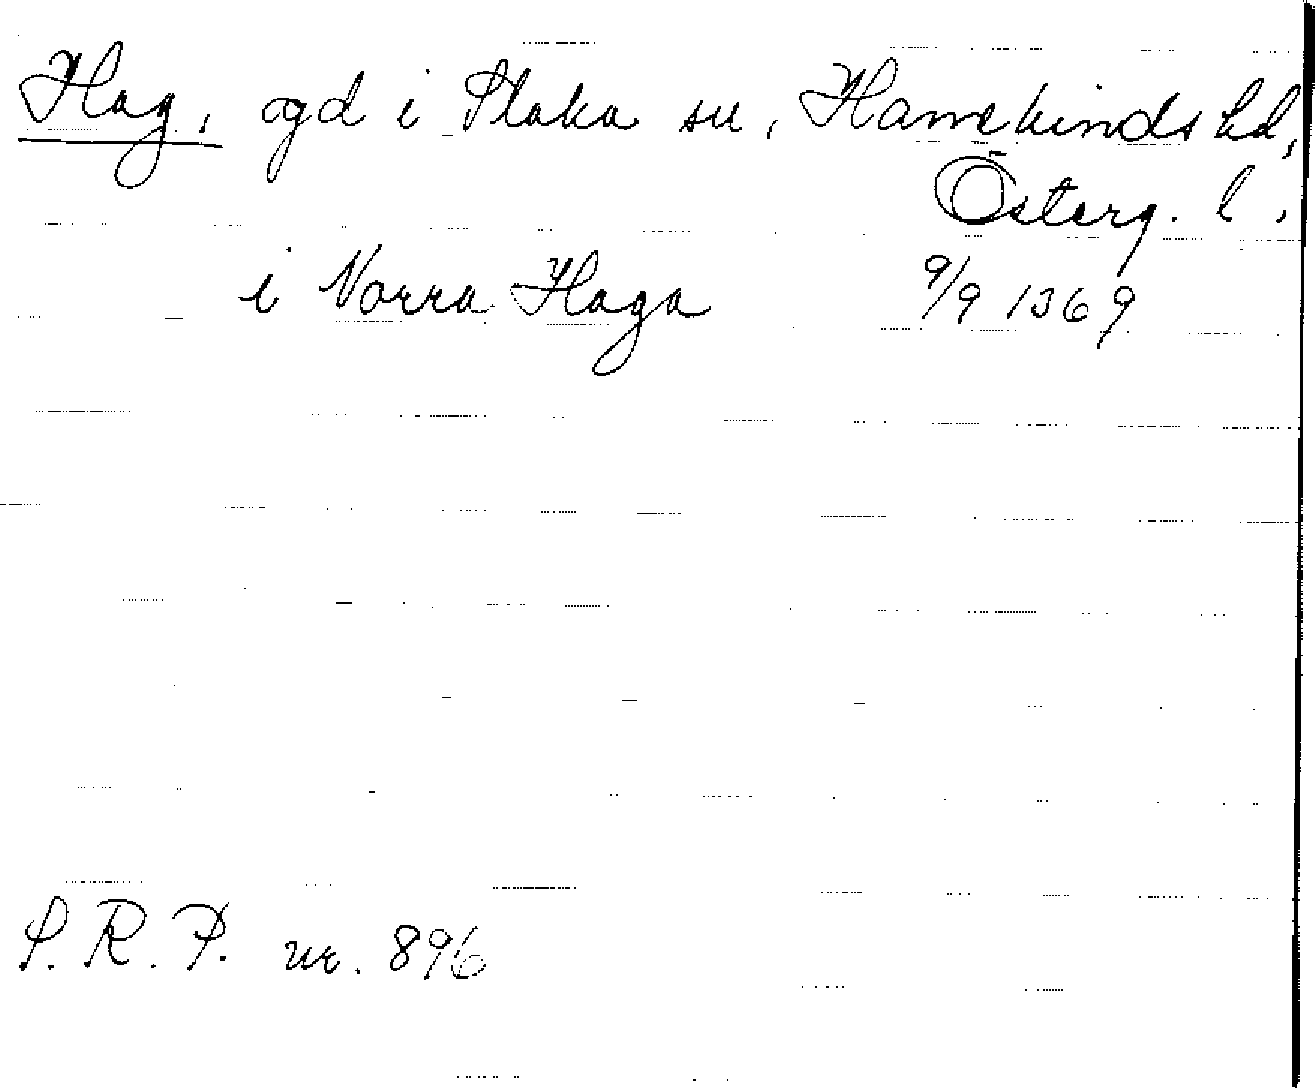 Hag, ogd i Slaka sn, Hanekinds hd,
Österg. l.
i Norra Haga 9/9 1369
S. R. P. nr. 896